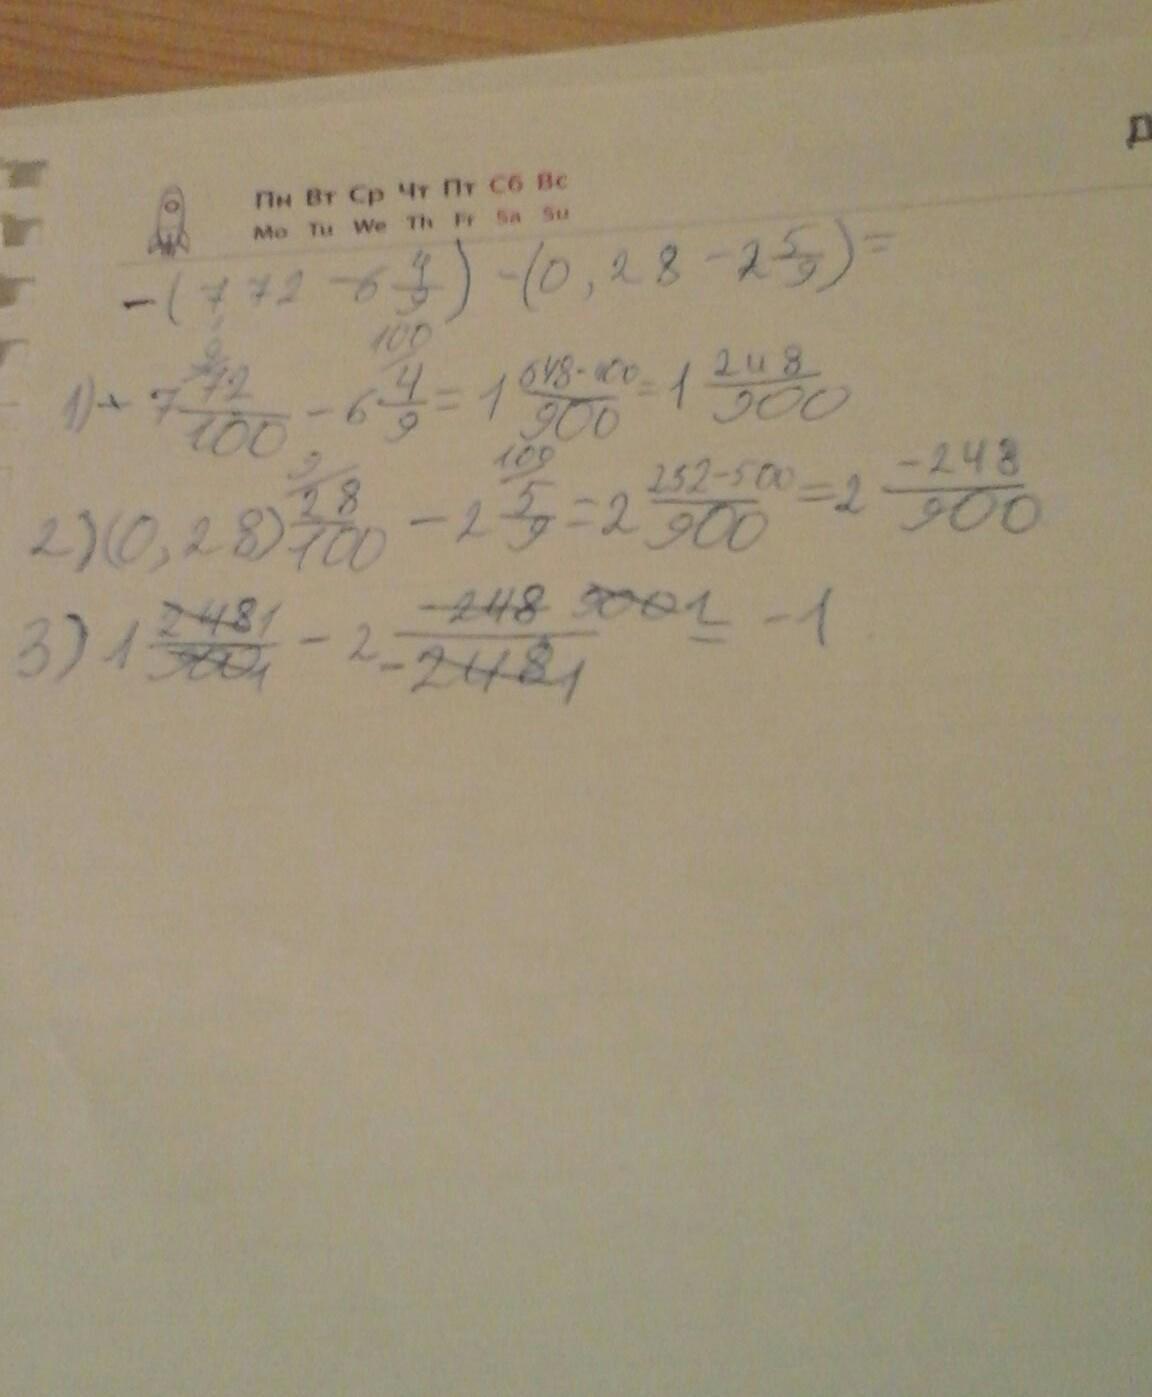 Д
Пн Вт Ср Чт Пт Сб Вс
Mo Tu We Th Fr Sa Su
-(7 72 - 6 4/9) - (0,28 - 2 5/9) =
1) 7 72/100 - 6 4/9 = 1 648-400/900 = 1 248/900
2) (0,28) 28/100 - 2 5/9 = 2 252-500/900 = 2 -248/900
3) 1 248 1/900 1 - 2 -248 900 1/-248 1 = -1